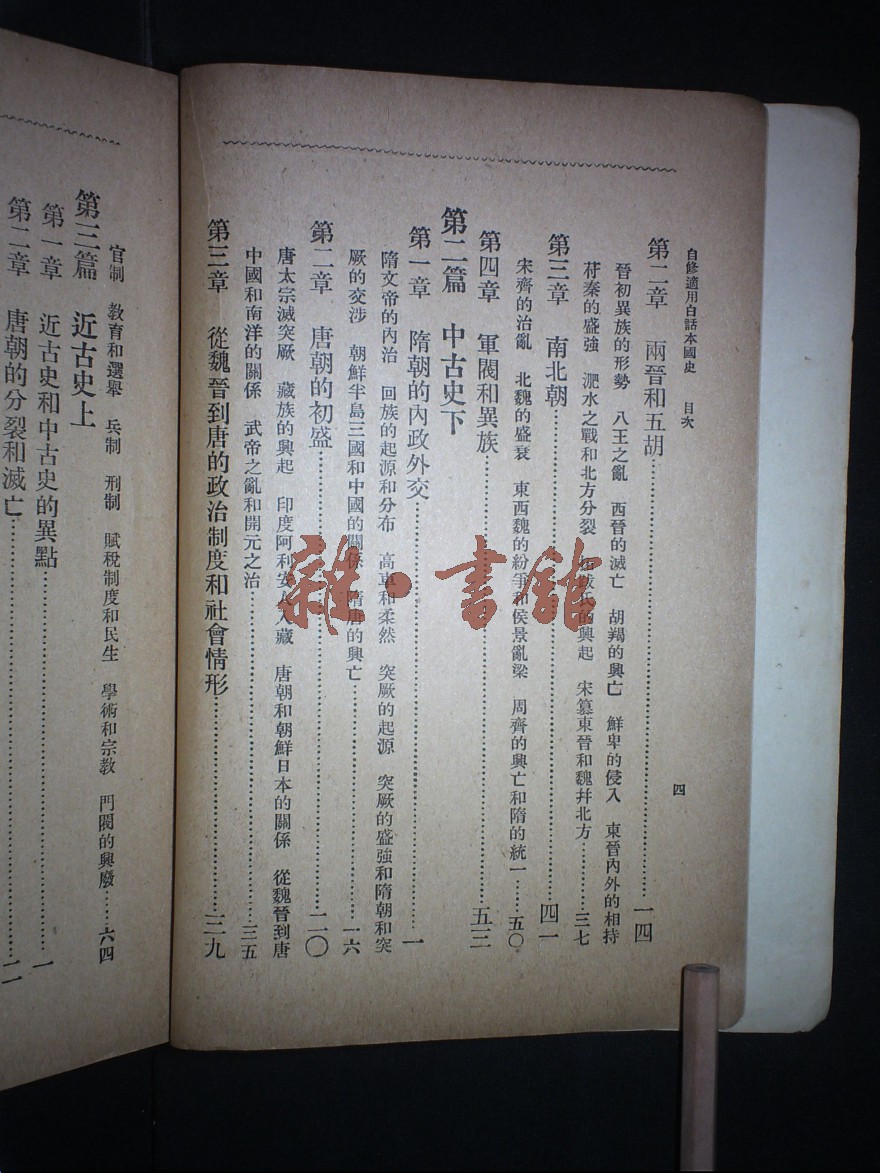 自修適用白話本國史 目次 四
第二章 兩晉和五胡……一四
晉初異族的形勢 八王之亂 西晉的滅亡 胡羯的興亡 鮮卑的侵入 東晉內外的相持
苻秦的盛強 淝水之戰和北方分裂 拓跋氏的興起 宋篡東晉和魏幷北方……三七
第三章 南北朝……四一
宋齊的治亂 北魏的盛衰 東西魏的紛爭和侯景亂梁 周齊的興亡和隋的統一……五〇
第四章 軍閥和異族……五三
第二篇 中古史下
第一章 隋朝的內政外交……一
隋文帝的內治 回族的起源和分布 高車和柔然 突厥的起源 突厥的盛強和隋朝和突
厥的交涉 朝鮮半島三國和中國的關係 隋唐的興亡……一六
第二章 唐朝的初盛……二〇
唐太宗滅突厥 藏族的興起 印度阿利安人入藏 唐朝和朝鮮日本的關係 從魏晉到唐
中國和南洋的關係 武帝之亂和開元之治……三五
第三章 從魏晉到唐的政治制度和社會情形……三九
官制 教育和選舉 兵制 刑制 賦稅制度和民生 學術和宗教 門閥的興廢……六四
第三篇 近古史上
第一章 近古史和中古史的異點……一
第二章 唐朝的分裂和滅亡……二
雜·書館